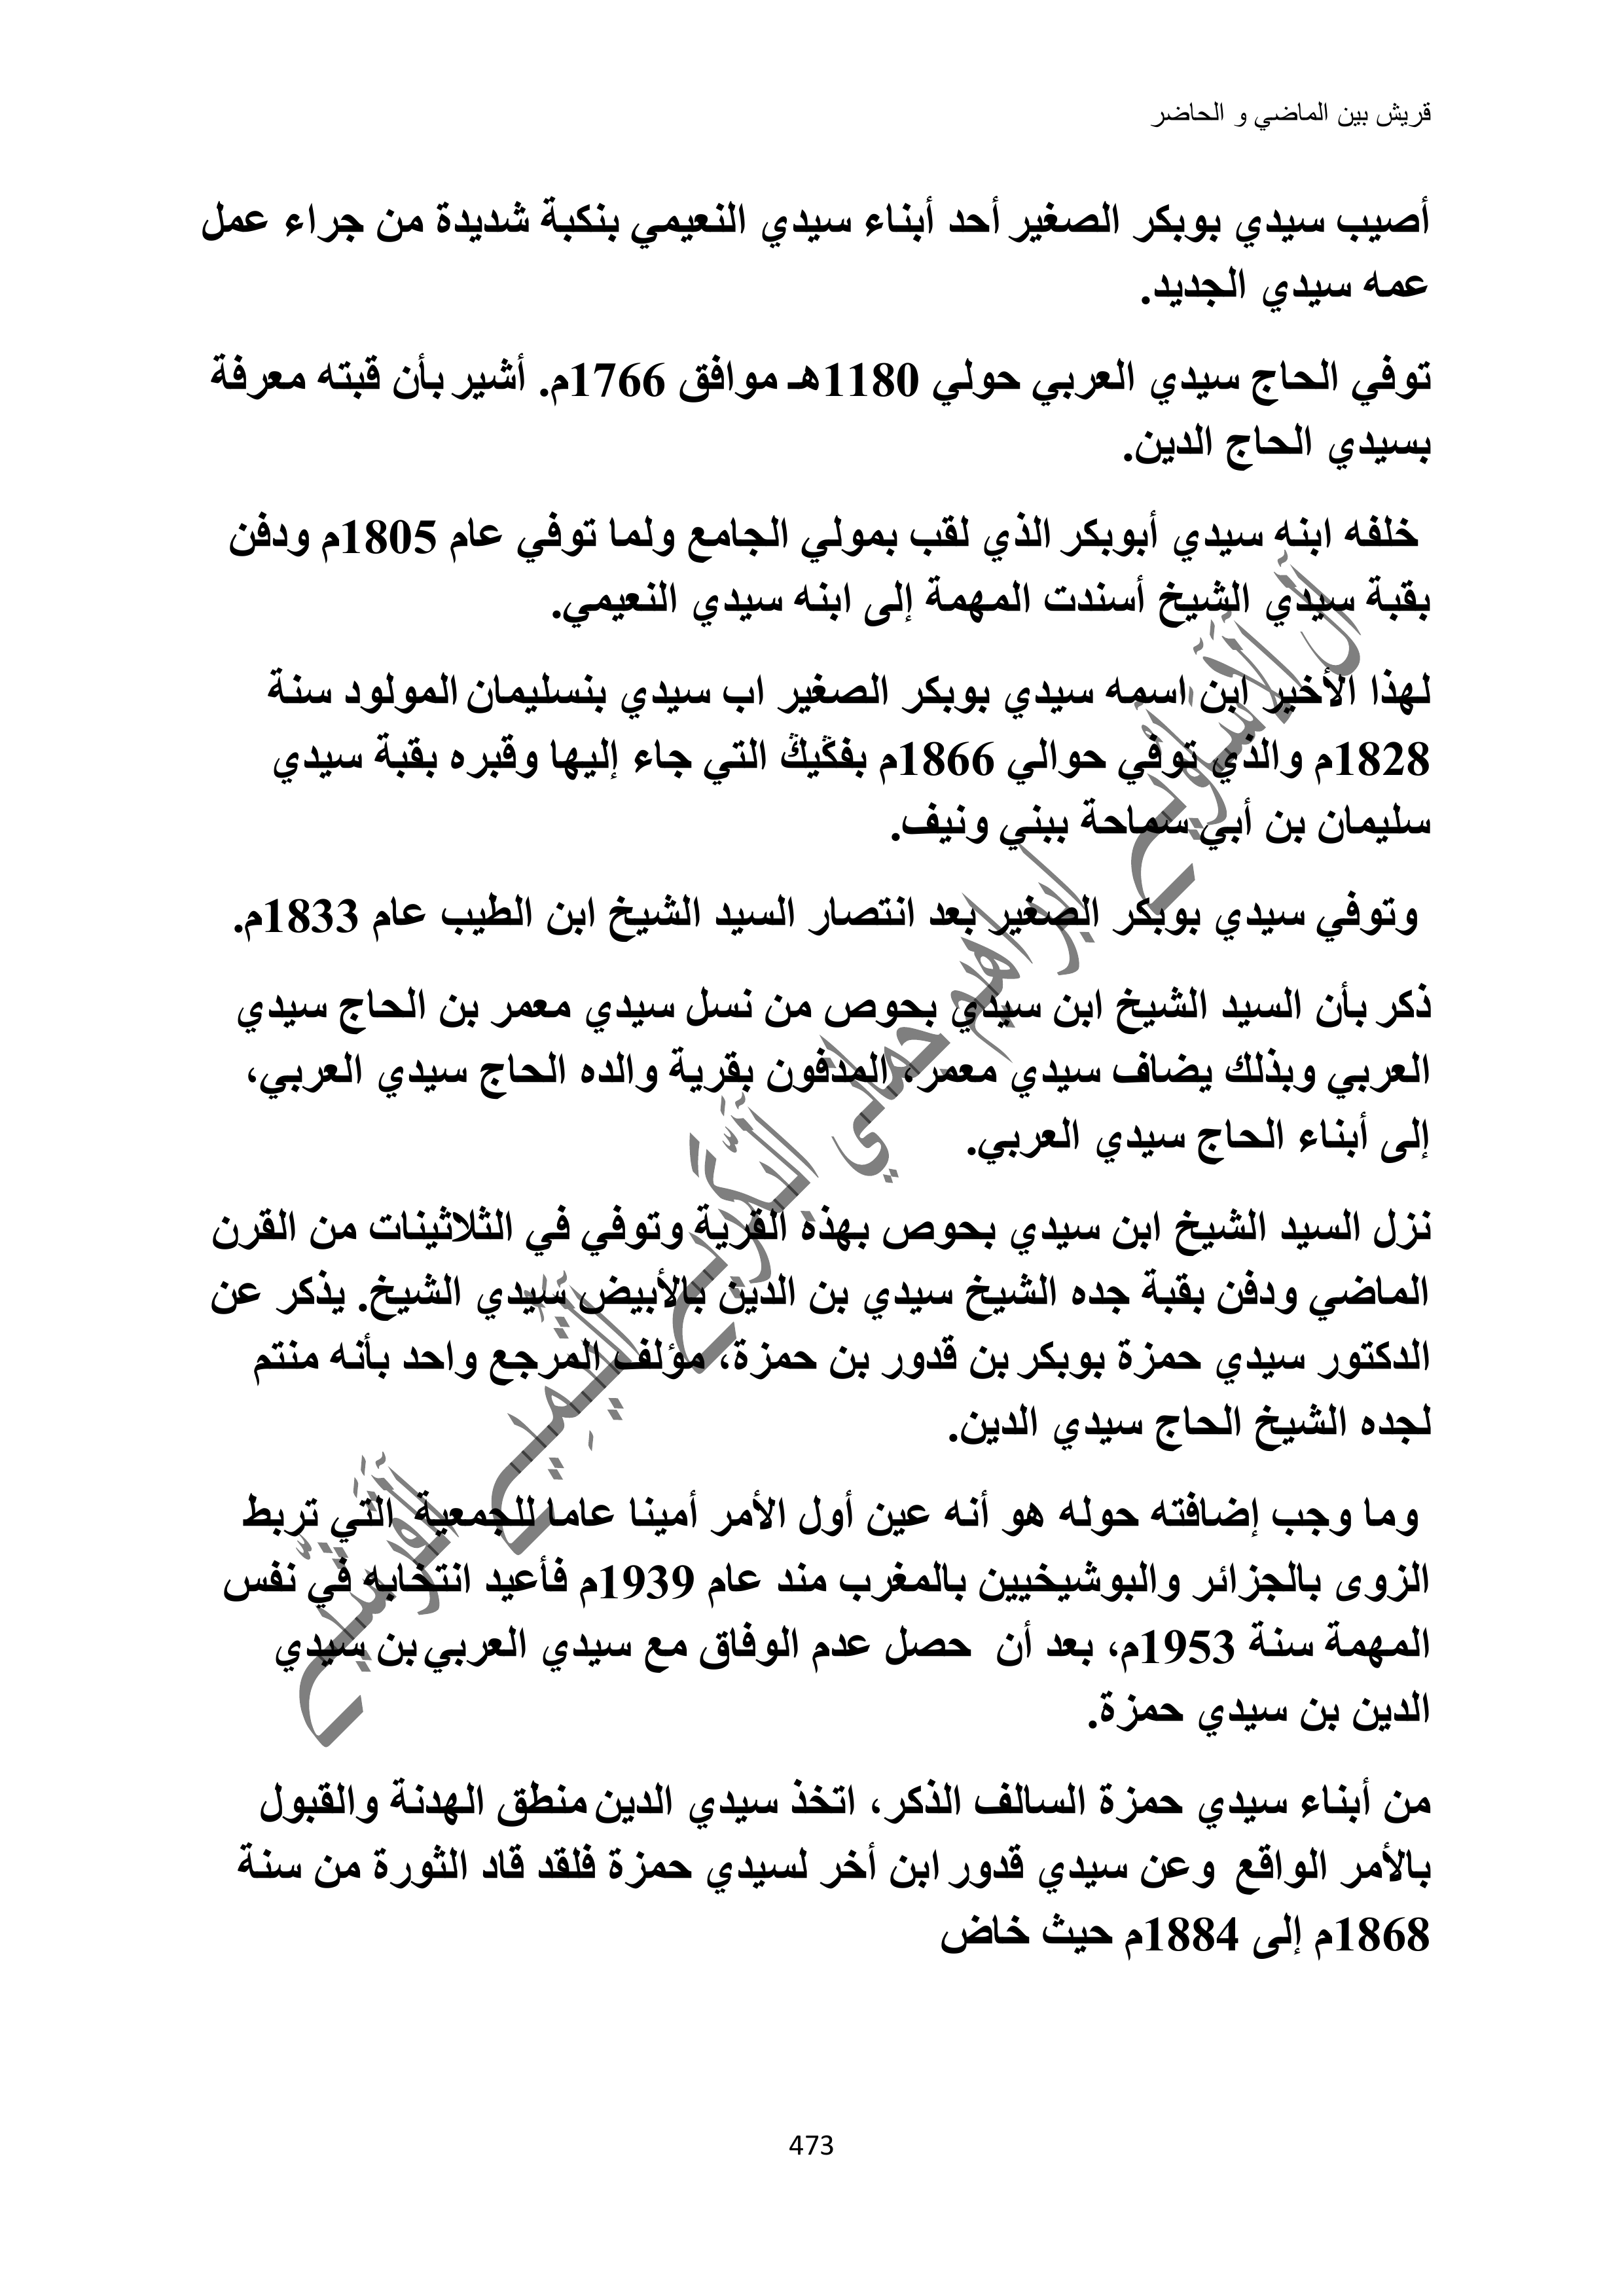 قريش بين الماضي و الحاضر
أصيب سيدي بوبكر الصغير أحد أبناء سيدي النعيمي بنكبة شديدة من جراء عمل
عمه سيدي الجديد.
توفي الحاج سيدي العربي حولي 1180هـ موافق 1766م. أشير بأن قبته معرفة
بسيدي الحاج الدين.
خلفه ابنه سيدي أبوبكر الذي لقب بمولي الجامع ولما توفي عام 1805م ودفن
بقبة سيدي الشيخ أسندت المهمة إلى ابنه سيدي النعيمي.
لهذا الأخير ابن اسمه سيدي بوبكر الصغير اب سيدي بنسليمان المولود سنة
1828م والذي توفي حوالي 1866م بفݣيݣ التي جاء إليها وقبره بقبة سيدي
سليمان بن أبي سماحة ببني ونيف.
وتوفي سيدي بوبكر الصغير بعد انتصار السيد الشيخ ابن الطيب عام 1833م.
ذكر بأن السيد الشيخ ابن سيدي بحوص من نسل سيدي معمر بن الحاج سيدي
العربي وبذلك يضاف سيدي معمر، المدفون بقرية والده الحاج سيدي العربي،
إلى أبناء الحاج سيدي العربي.
نزل السيد الشيخ ابن سيدي بحوص بهذه القرية وتوفي في الثلاثينات من القرن
الماضي ودفن بقبة جده الشيخ سيدي بن الدين بالأبيض سيدي الشيخ. يذكر عن
الدكتور سيدي حمزة بوبكر بن قدور بن حمزة، مؤلف المرجع واحد بأنه منتم
لجده الشيخ الحاج سيدي الدين.
وما وجب إضافته حوله هو أنه عين أول الأمر أمينا عاما للجمعية التي تربط
الزوى بالجزائر والبوشيخيين بالمغرب مند عام 1939م فأعيد انتخابه في نفس
المهمة سنة 1953م، بعد أن حصل عدم الوفاق مع سيدي العربي بن سيدي
الدين بن سيدي حمزة.
من أبناء سيدي حمزة السالف الذكر، اتخذ سيدي الدين منطق الهدنة والقبول
بالأمر الواقع وعن سيدي قدور ابن أخر لسيدي حمزة فلقد قاد الثورة من سنة
1868م إلى 1884م حيث خاض
473